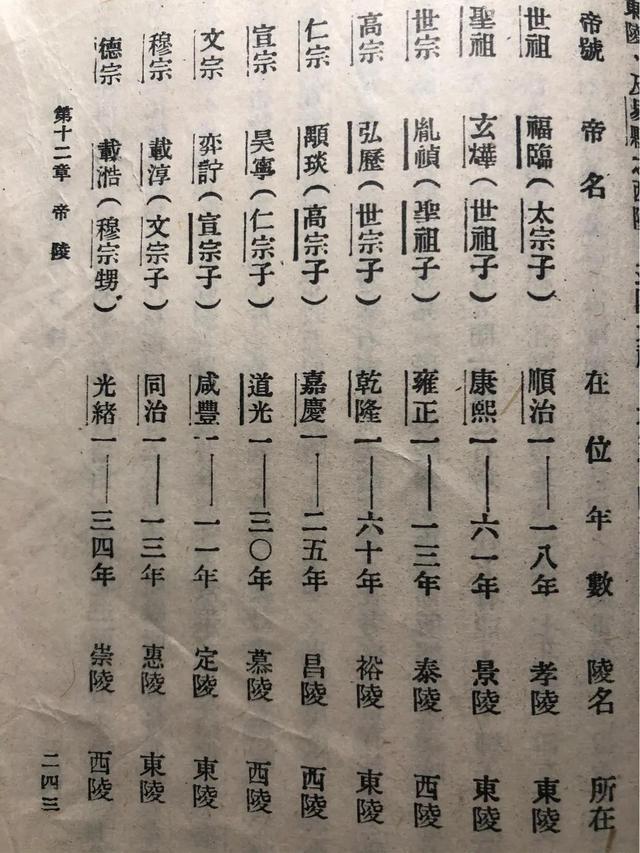 帝號 帝名 在位年數 陵名 所在
世祖 福臨（太宗子） 順治一——一八年 孝陵 東陵
聖祖 玄燁（世祖子） 康熙一——六一年 景陵 東陵
世宗 胤禎（聖祖子） 雍正一——一三年 泰陵 西陵
高宗 弘歷（世宗子） 乾隆一——六十年 裕陵 東陵
仁宗 顒琰（高宗子） 嘉慶一——二五年 昌陵 西陵
宣宗 昊寧（仁宗子） 道光一——三〇年 慕陵 西陵
文宗 弈詝（宣宗子） 咸豐一——一一年 定陵 東陵
穆宗 載淳（文宗子） 同治一——一三年 惠陵 東陵
德宗 載湉（穆宗甥） 光緒一——三四年 崇陵 西陵
第十二章 帝陵 二四三